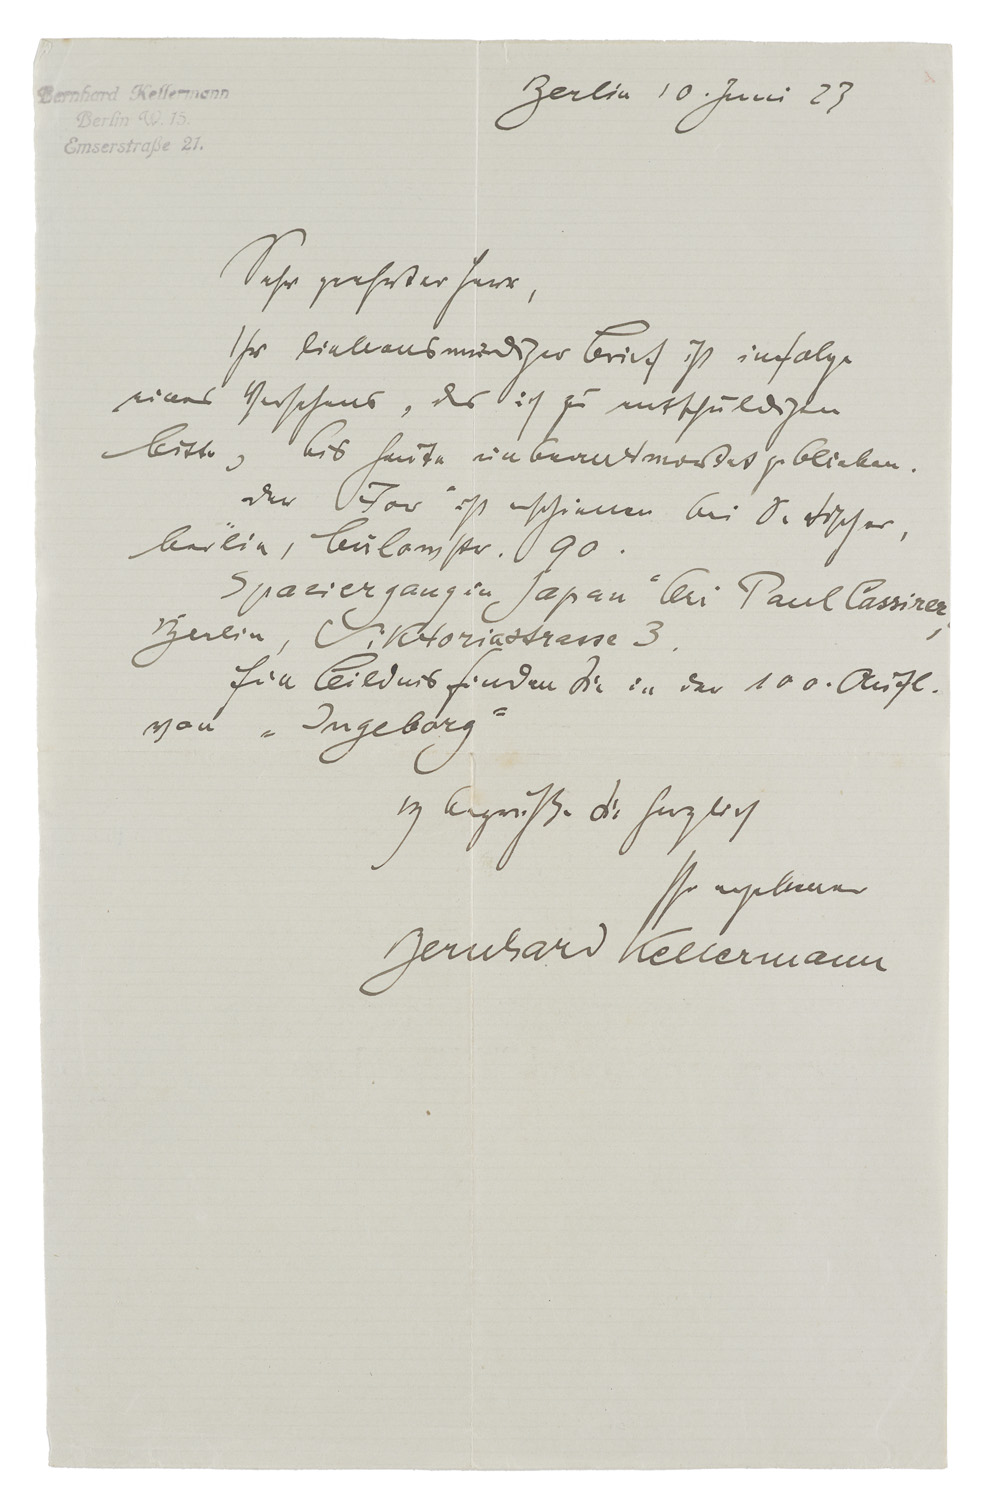 Bernhard Kellermann
Berlin W. 15.
Emserstraße 21.
Berlin 10. Juni 23
Sehr geehrter Herr,
Ihr liebenswürdiger Brief ist infolge
eines Versehens, das ich zu entschuldigen
bitte, bis heute unbeantwortet geblieben.
Der „Tor“ ist erschienen bei S. Fischer,
Berlin, Bülowstr. 90.
Spaziergang in Japan“ bei Paul Cassirer,
Berlin, Viktoriastrasse 3.
Ein Bildnis finden Sie in der 100. Aufl.
von „Ingeborg“
Ich begrüße Sie herzlich
Ihr ergebener
Bernhard Kellermann